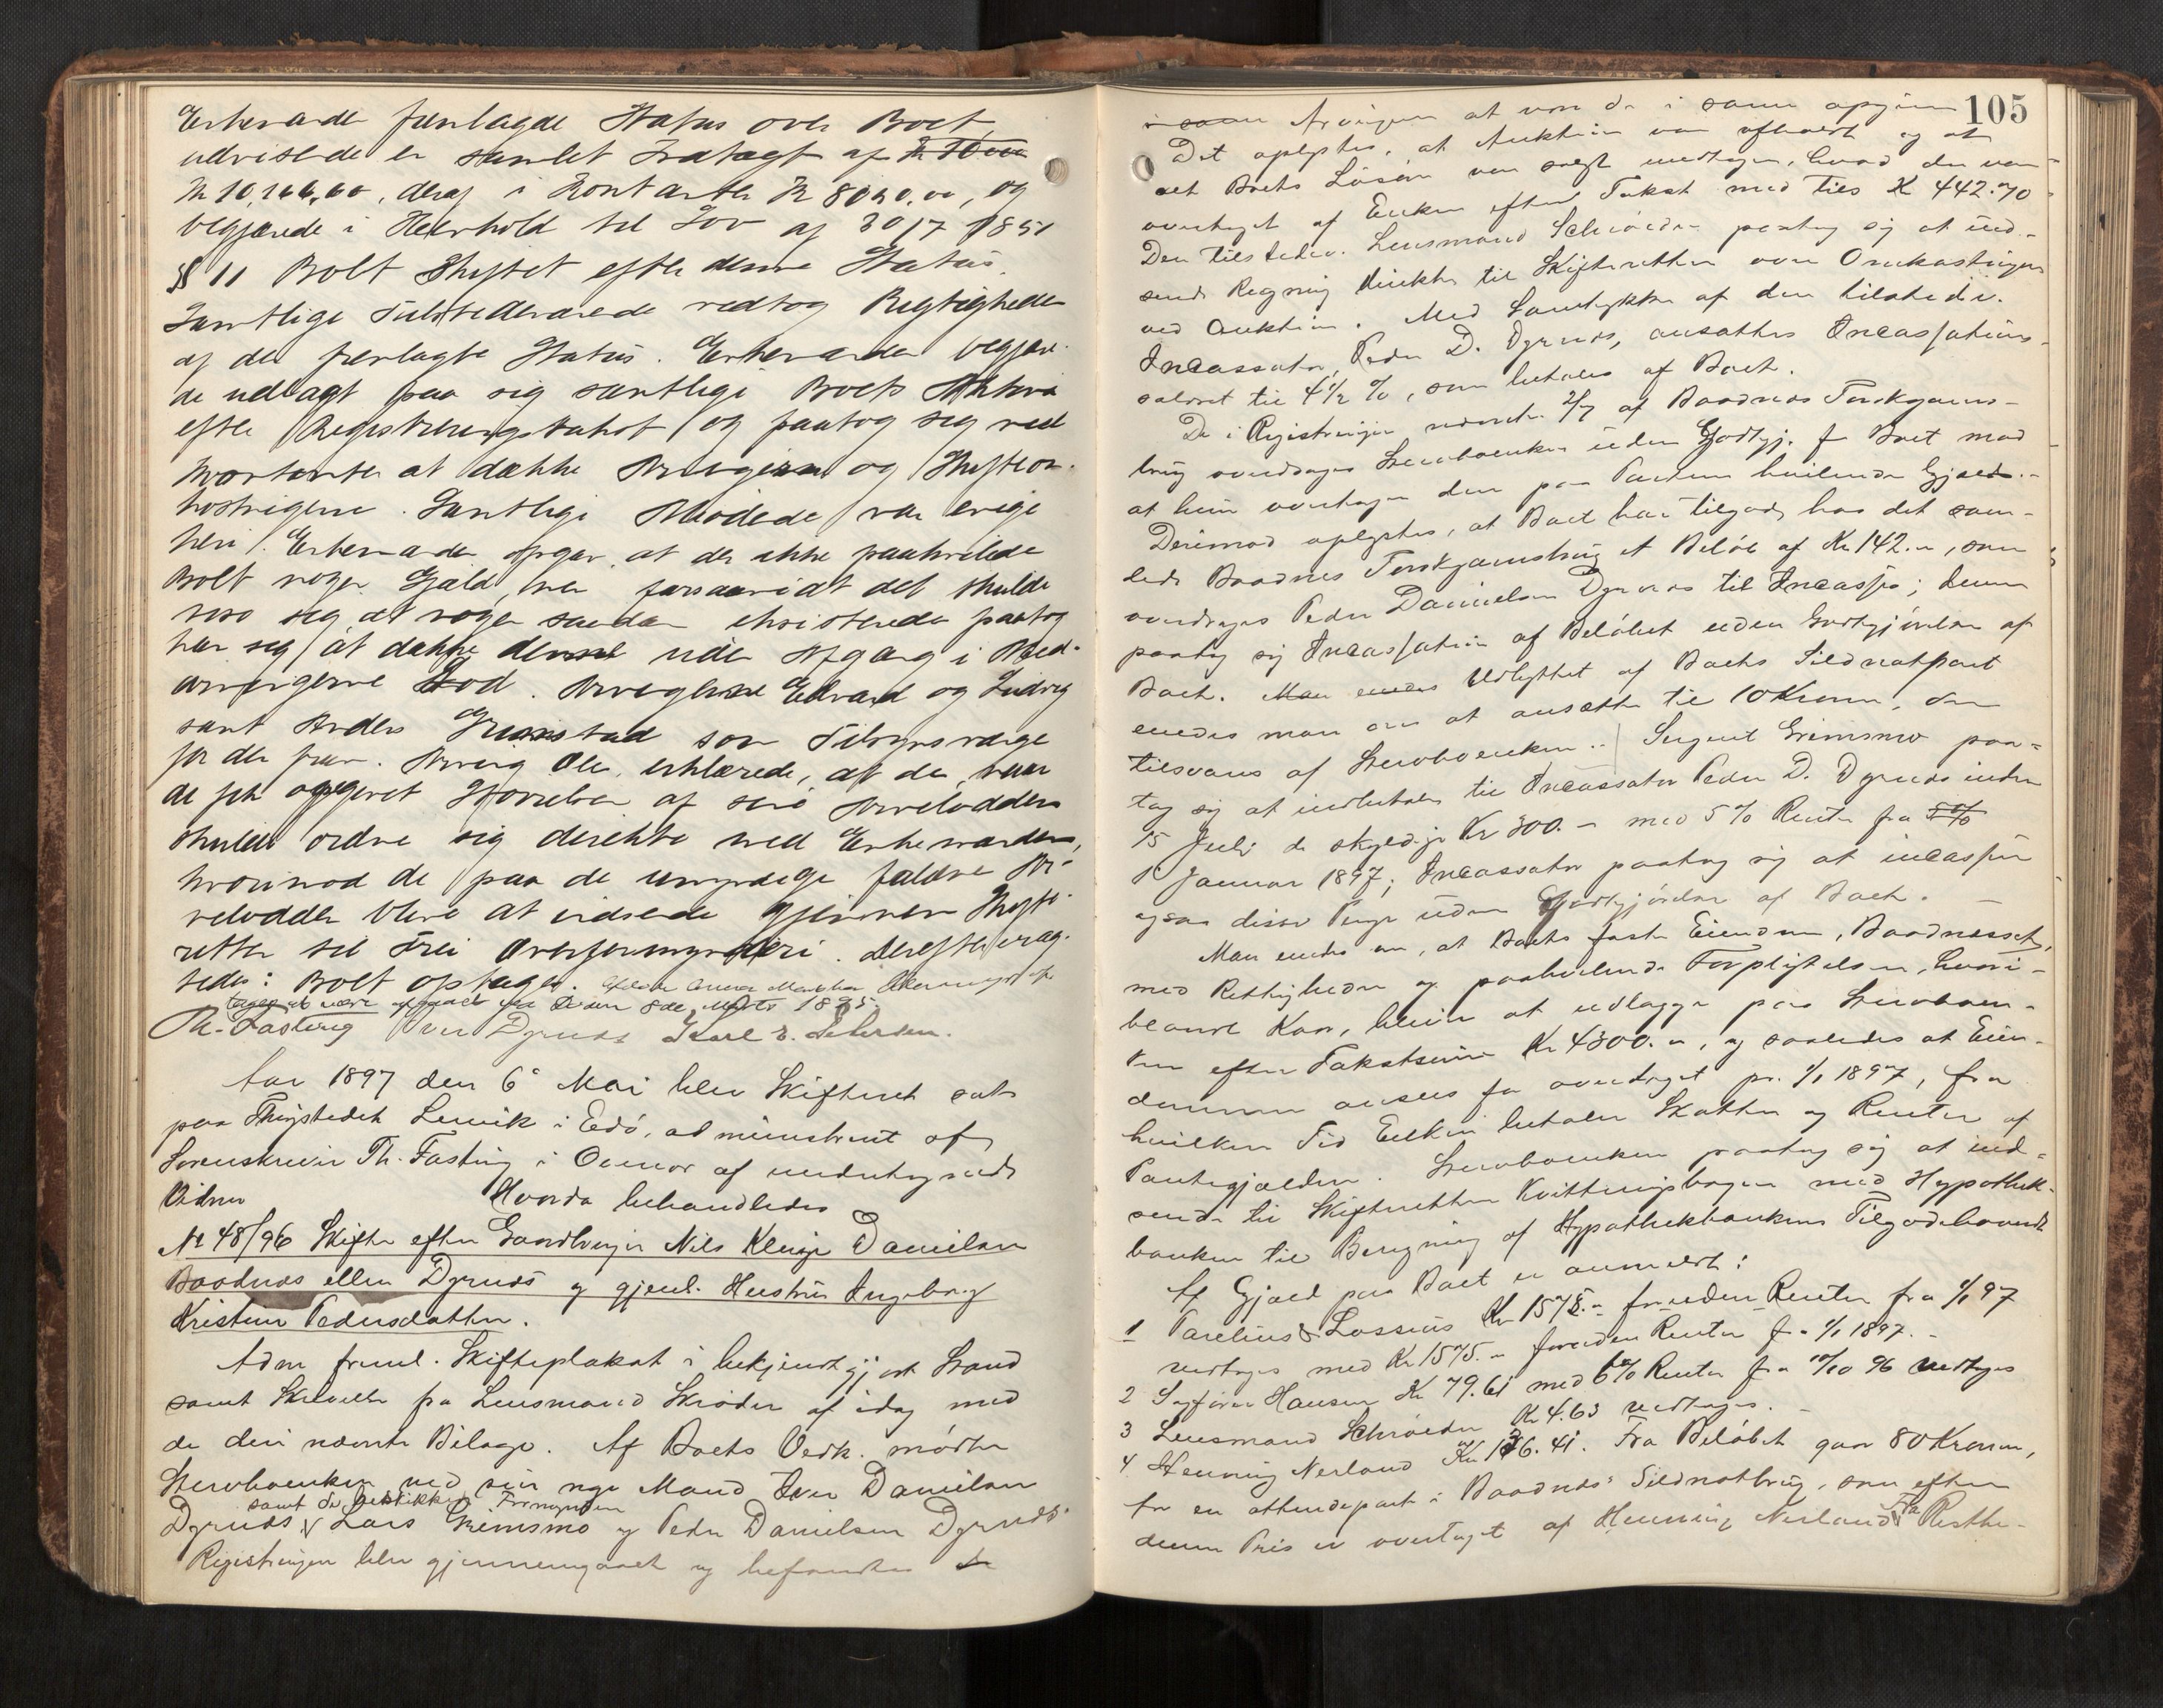 Enkemanden fremlagde Status over Boet
udvisende en samlet Indtægt af
Kr 10,166,60, deraf i Kontanter Kr 8020,00, og
begjærede i Henhold til Lov af 30/7 1851
§ 11 Boet Skiftet efter denne Status.
Samtlige Tilstedeværende vedtog Rigtigheden
af den fremlagte Status. Enkemanden begjær-
de udlagt paa sig samtlige Boets Aktiva
efter Registreringstakst og paatog sig ved
Kontanter at dække Arvingerne og Skifteom-
kostningerne. Samtlige Mødende var enige
heri. Enkemanden opgav, at der ikke paahvilede
Boet nogen Gjæld, men forsaavidt det skulde
vise sig at nogen saadan eksisterede paatog
han sig at dække denne uden Afgang i Med-
arvingernes Lod. Arvingerne Edvard og Ludvig
samt Anders Grimstad som Tilsynsværge
for den frav. Arving Ole, erklærede, at de, naar
de fik opgivet Størrelsen af sine Arvelodder
skulde ordne sig direkte med Enkemanden,
hvorimod de paa de umyndige faldne Ar-
velodder bliver at indsende gjennem Skifte-
retten til Frei Overformynderi. Derefter erag-
tedes: Boet optages.
8de Marts 1895
Th. Fasting Iver Dyrnæs Karl E. Pedersen.
Aar 1897 den 6te Mai blev Skifteret sat
paa Thingstedet Leirvik i Edø, administreret af
Sorenskriver Th. Fasting i Overvær af undertegnede
Vidner Hvorda behandledes
No 48/96 Skifte efter Gaardbruger Nils Kleng Danielsen
Baadnæs eller Dyrnæs og gjenl. Hustru Ingeborg
Kristine Pedersdatter.
Adm freml. Skifteplakat i bekjendtgjort Stand
samt Skrivelse fra Lensmand Skrøder af idag med
de deri nævnte Bilage. Af Boets Vedk. mødte
Stervboenken med sin nye Mand Iver Danielsen
samt de beskikkede Formyndere
Dyrnæs Lars Grimsmo og Peder Danielsen Dyrnæs.
Registreringen blev gjennemgaaet og befandtes
105
Arvingerne at være de i samme opgivne
Det oplystes, at Auktion var afholdt og at
det Boets Løsøre var solgt undtagen, hvad der var
overtaget af Enken efter Takst med tils K 442.70
Den tilstedev. Lensmand Schrøder paatog sig at ind-
sende Regning direkte til Skifteretten over Omkostningerne
ved Auktion. Med Samtykke af den tilstedev.
Incassator, Peder D. Dyrnæs, ansattes Incassations-
salæret til 4 1/2 %, som betales af Boet.
De i Registreringen nævnte 2/7 af Baadnæs Torskgarns-
brug overdrages Stervboenken uden Godtgj. f. Boet mod
at hun overtager den paa Parten hvilende Gjæld.-
Derimod oplystes, at Boet har tilgode hos det sam-
lede Baadnæs Torskgarnsbrug et Beløb af Kr 142.-, som
overdrages Peder Danielsen Dyrnæs til Incasso; denne
paatog sig Incassation af Beløbet uden Godtgjørelse af
Boet. Man enedes Udbyttet af Boets Sildnotpart
enedes man om at ansætte til 10 Kroner, der
tilsvares af Stervboenken.. Sergeant Grimsmo paa-
tog sig at indbetale til Incassator Peder D. Dyrnæs inden
15 Juli de skyldige Kr 300.- med 5 % Renter fra 5 %
1 Januar 1897; Incassator paatog sig at incassere
ogsaa disse Penge uden Godtgjørelse af Boet. -
Man enedes om, at Boets faste Eiendom, Baadnæsset,
med Rettigheder og paahvilende Forpligtelser, hvori-
blandt Kaar, bliver at udlægge paa Stervboen-
ken efter Takstsum Kr 4300.-, og saaledes at Eien-
dommen ansees for overdraget pr. 1/1 1897, fra
hvilken Tid Enken betaler Skatter og Renter af
Pantegjælden. Stervboenken paatog sig at ind-
sende til Skifteretten Kvitteringsbogen med Hypothek-
banken til Beregning af Hypothekbankens Tilgodehavende
Af Gjæld paa Boet er anmeldt:
1 Parelius & Lossius Kr 1575.- foruden Renter fra 1/1 97
vedtages med Kr 1575.- foruden Renter fra 1/1 1897.-
2 Sagfører Hansen Kr 79.61 med 6% Renter fra 10/10 96 vedtages
3 Lensmand Schrøder Kr 4.63 vedtages. -
4 Henning Nerland Kr 136.41. Fra Beløbet gaar 80 Kroner,
for en ottendepart i Baadnæs Sildnotbrug, som efter
denne Pris er overtaget af Henning Nerland. Restbe-